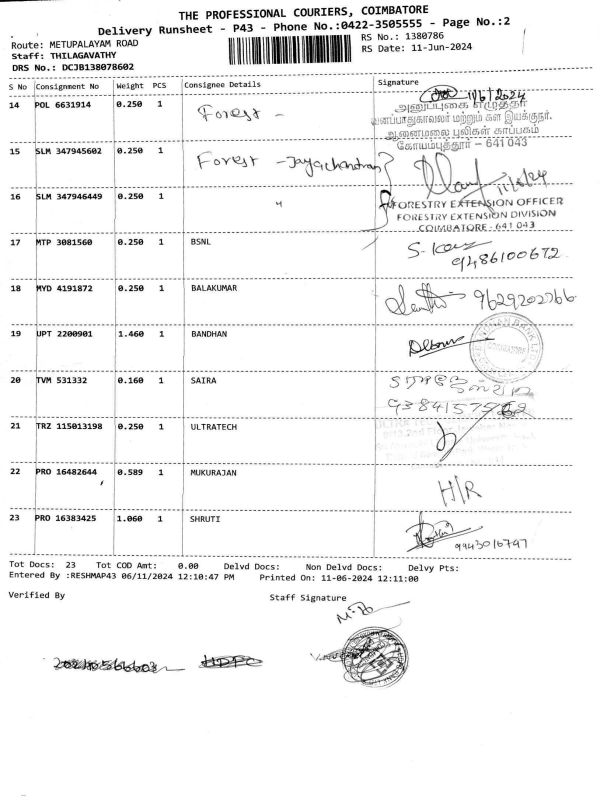 THE PROFESSIONAL COURIERS, COIMBATORE
Delivery Runsheet - P43 - Phone No.:0422-3505555 - Page No.:2
Route: METUPALAYAM ROAD
RS No.: 1380786
Staff: THILAGAVATHY
RS Date: 11-Jun-2024
DRS No.: DCJB138078602
S No Consignment No Weight PCS Consignee Details Signature
14 POL 6631914 0.250 1 Forest - 11/6/2024
அனுப்புகை எழுத்தர்
வனப்பாதுகாவலர் மற்றும் கள இயக்குநர்.
ஆனைமலை புலிகள் காப்பகம்
கோயம்புத்தூர் - 641 043
15 SLM 347945602 0.250 1 Forest - Jayachandran
11/6/24
16 SLM 347946449 0.250 1 "
FORESTRY EXTENSION OFFICER
FORESTRY EXTENSION DIVISION
COIMBATORE - 641 043
17 MTP 3081560 0.250 1 BSNL
9486100672
18 MYD 4191872 0.250 1 BALAKUMAR 9629202766
19 UPT 2200901 1.460 1 BANDHAN
20 TVM 531332 0.160 1 SAIRA
21 TRZ 115013198 0.250 1 ULTRATECH
22 PRO 16482644 0.589 1 MUKURAJAN H/R
23 PRO 16383425 1.060 1 SHRUTI
9943016797
Tot Docs: 23 Tot COD Amt: 0.00 Delvd Docs: Non Delvd Docs: Delvy Pts:
Entered By :RESHMAP43 06/11/2024 12:10:47 PM Printed On: 11-06-2024 12:11:00
Verified By Staff Signature